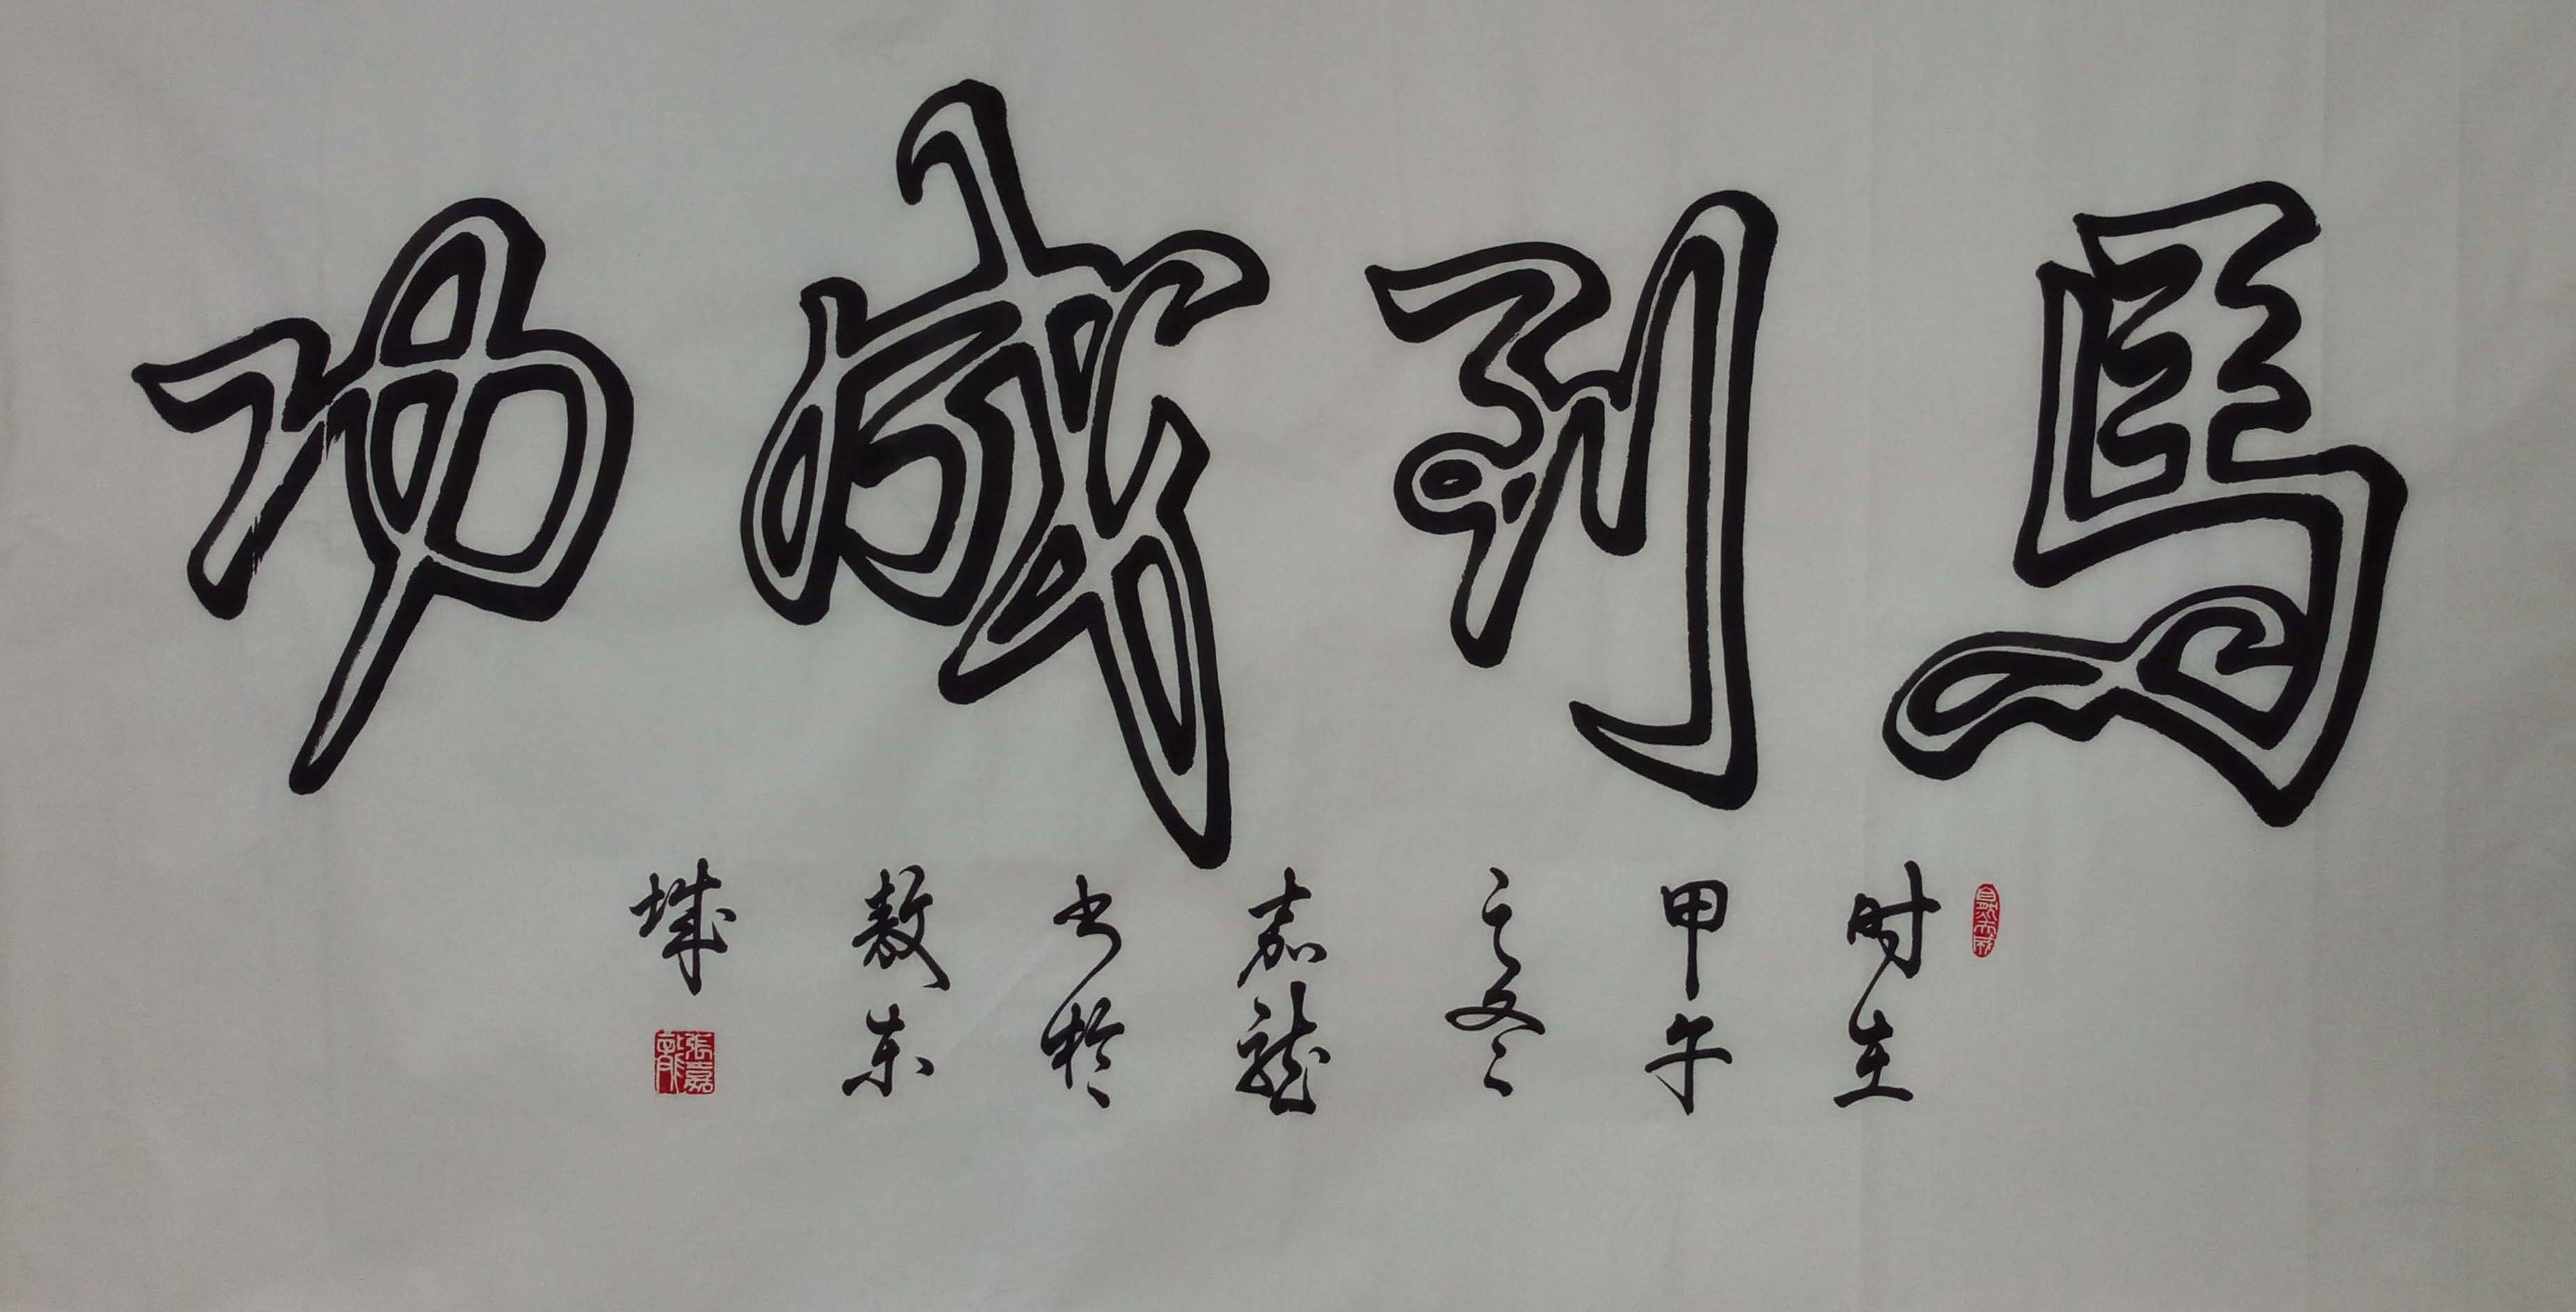 馬到成功
时在
甲午
之冬
嘉龍
书於
敖东
城
張嘉龍